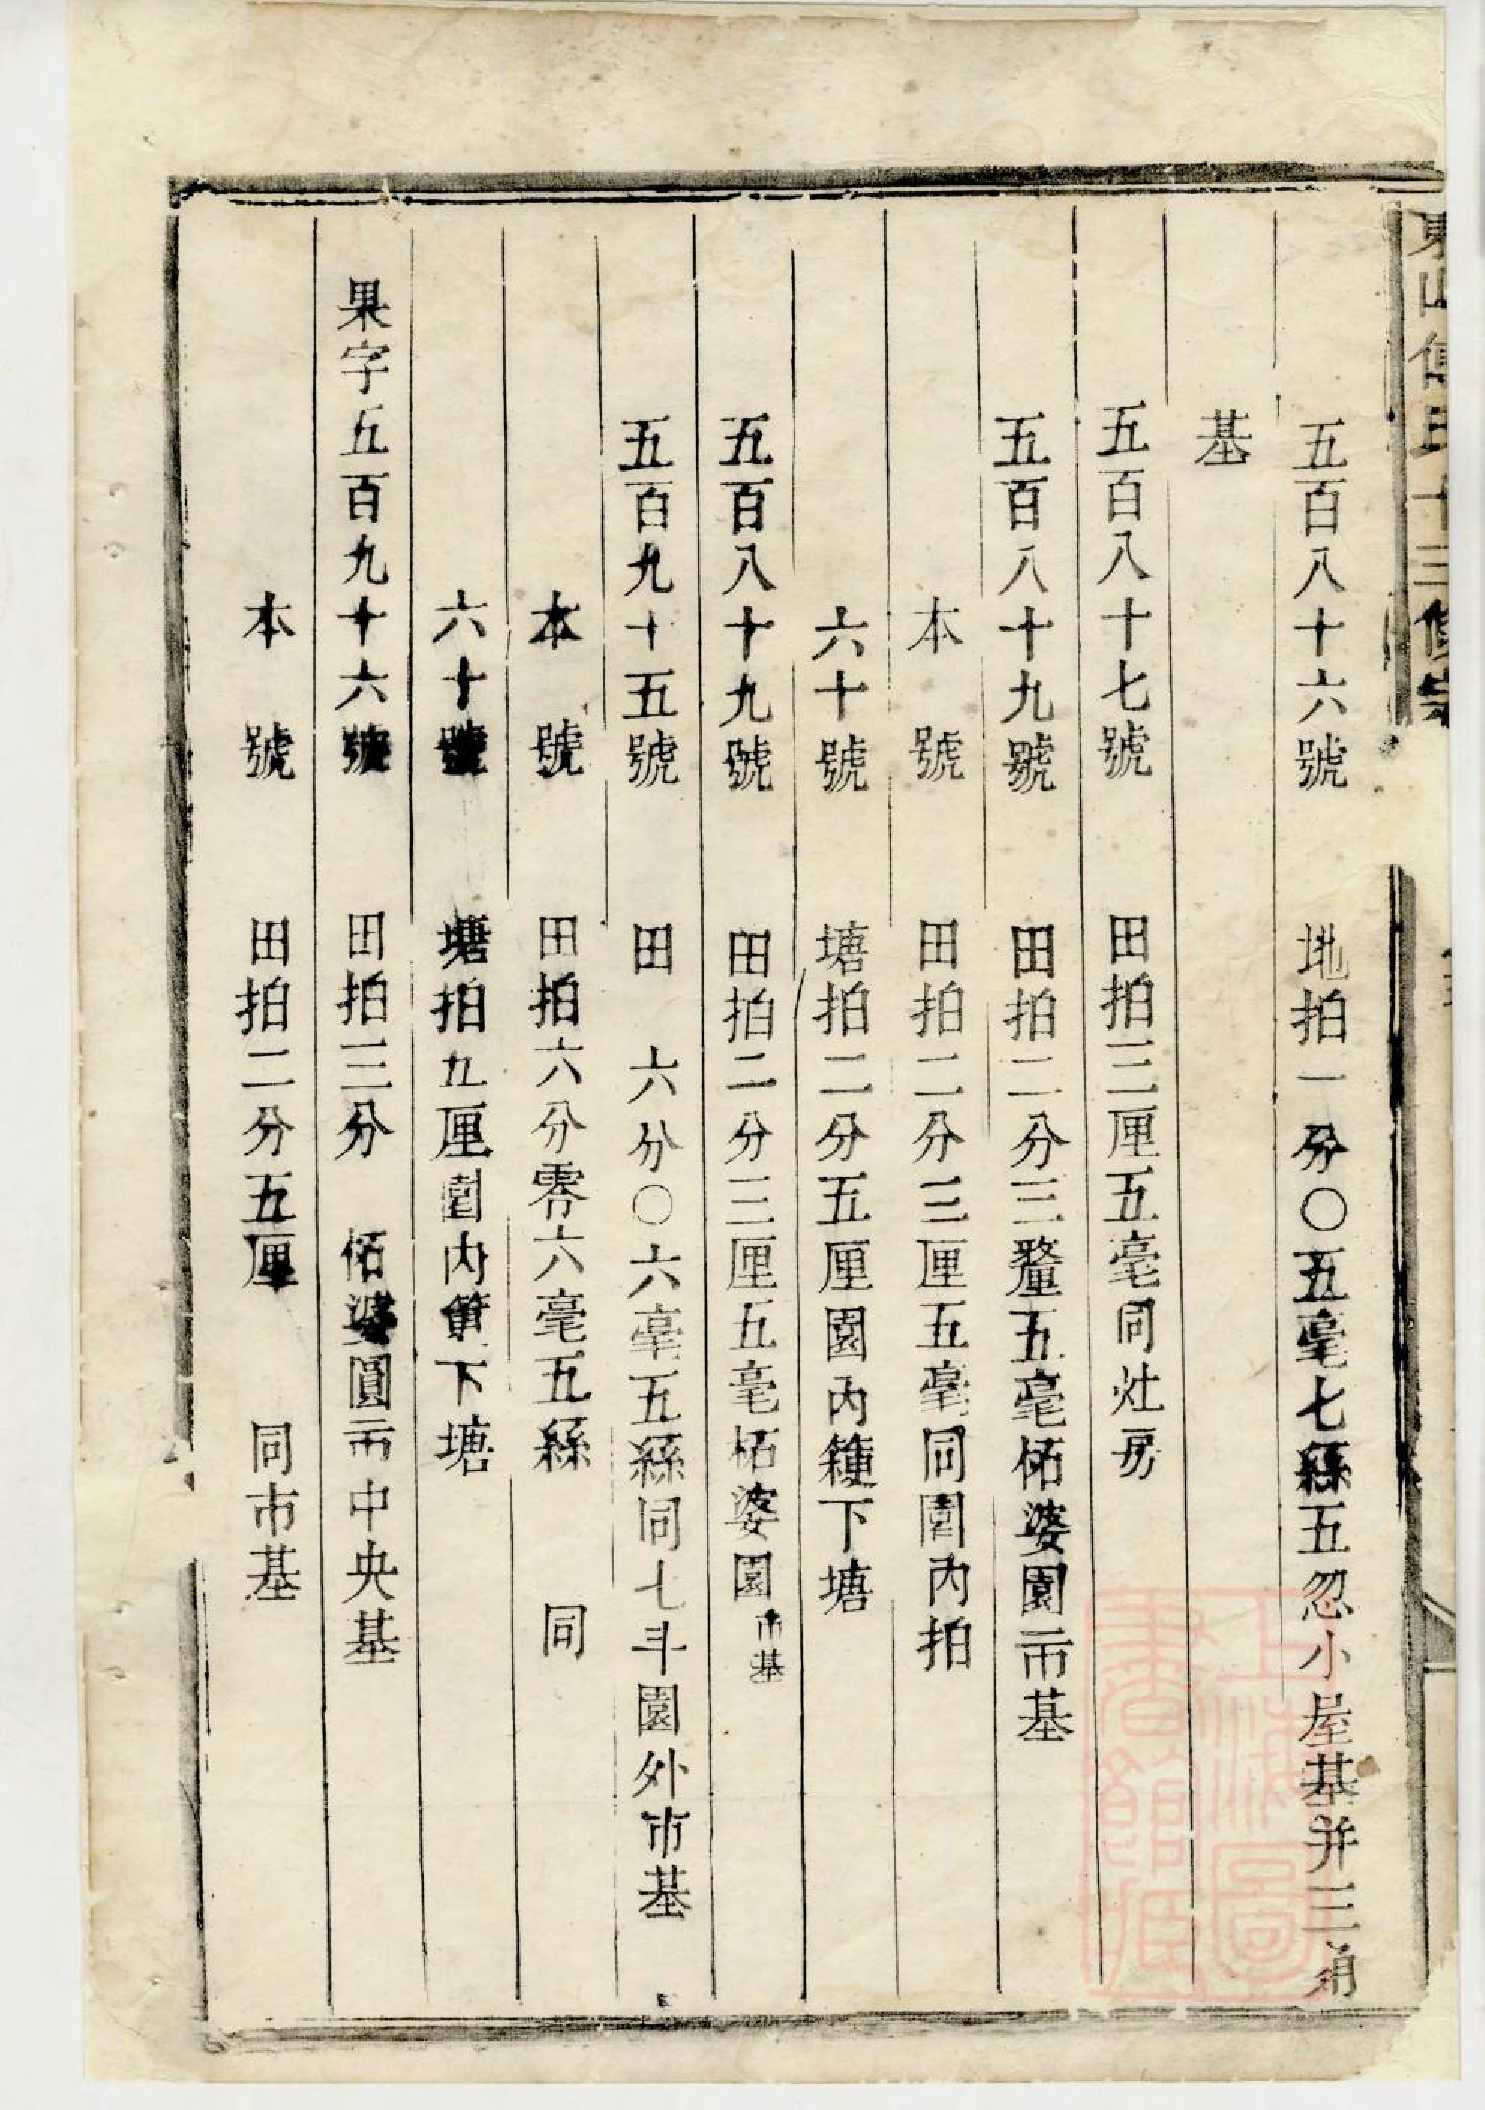 東山傅氏十三修宗
五百八十六號 地拍一分〇五毫七絲五忽小屋基并三角
基
五百八十七號 田拍三厘五毫同灶房
五百八十九號 田拍二分三釐五毫栢婆園市基
本號 田拍二分三厘五毫同園內拍
六十號 塘拍二分五厘園內下塘
五百八十九號 田拍二分三厘五毫栢婆園市基
五百九十五號 田 六分〇六毫五絲同七斗園外市基
本號 田拍六分零六毫五絲 同
六十號 塘拍九厘園內下塘
果字五百九十六號 田拍三分 栢婆園市中央基
本號 田拍二分五厘 同市基
上海圖書館藏